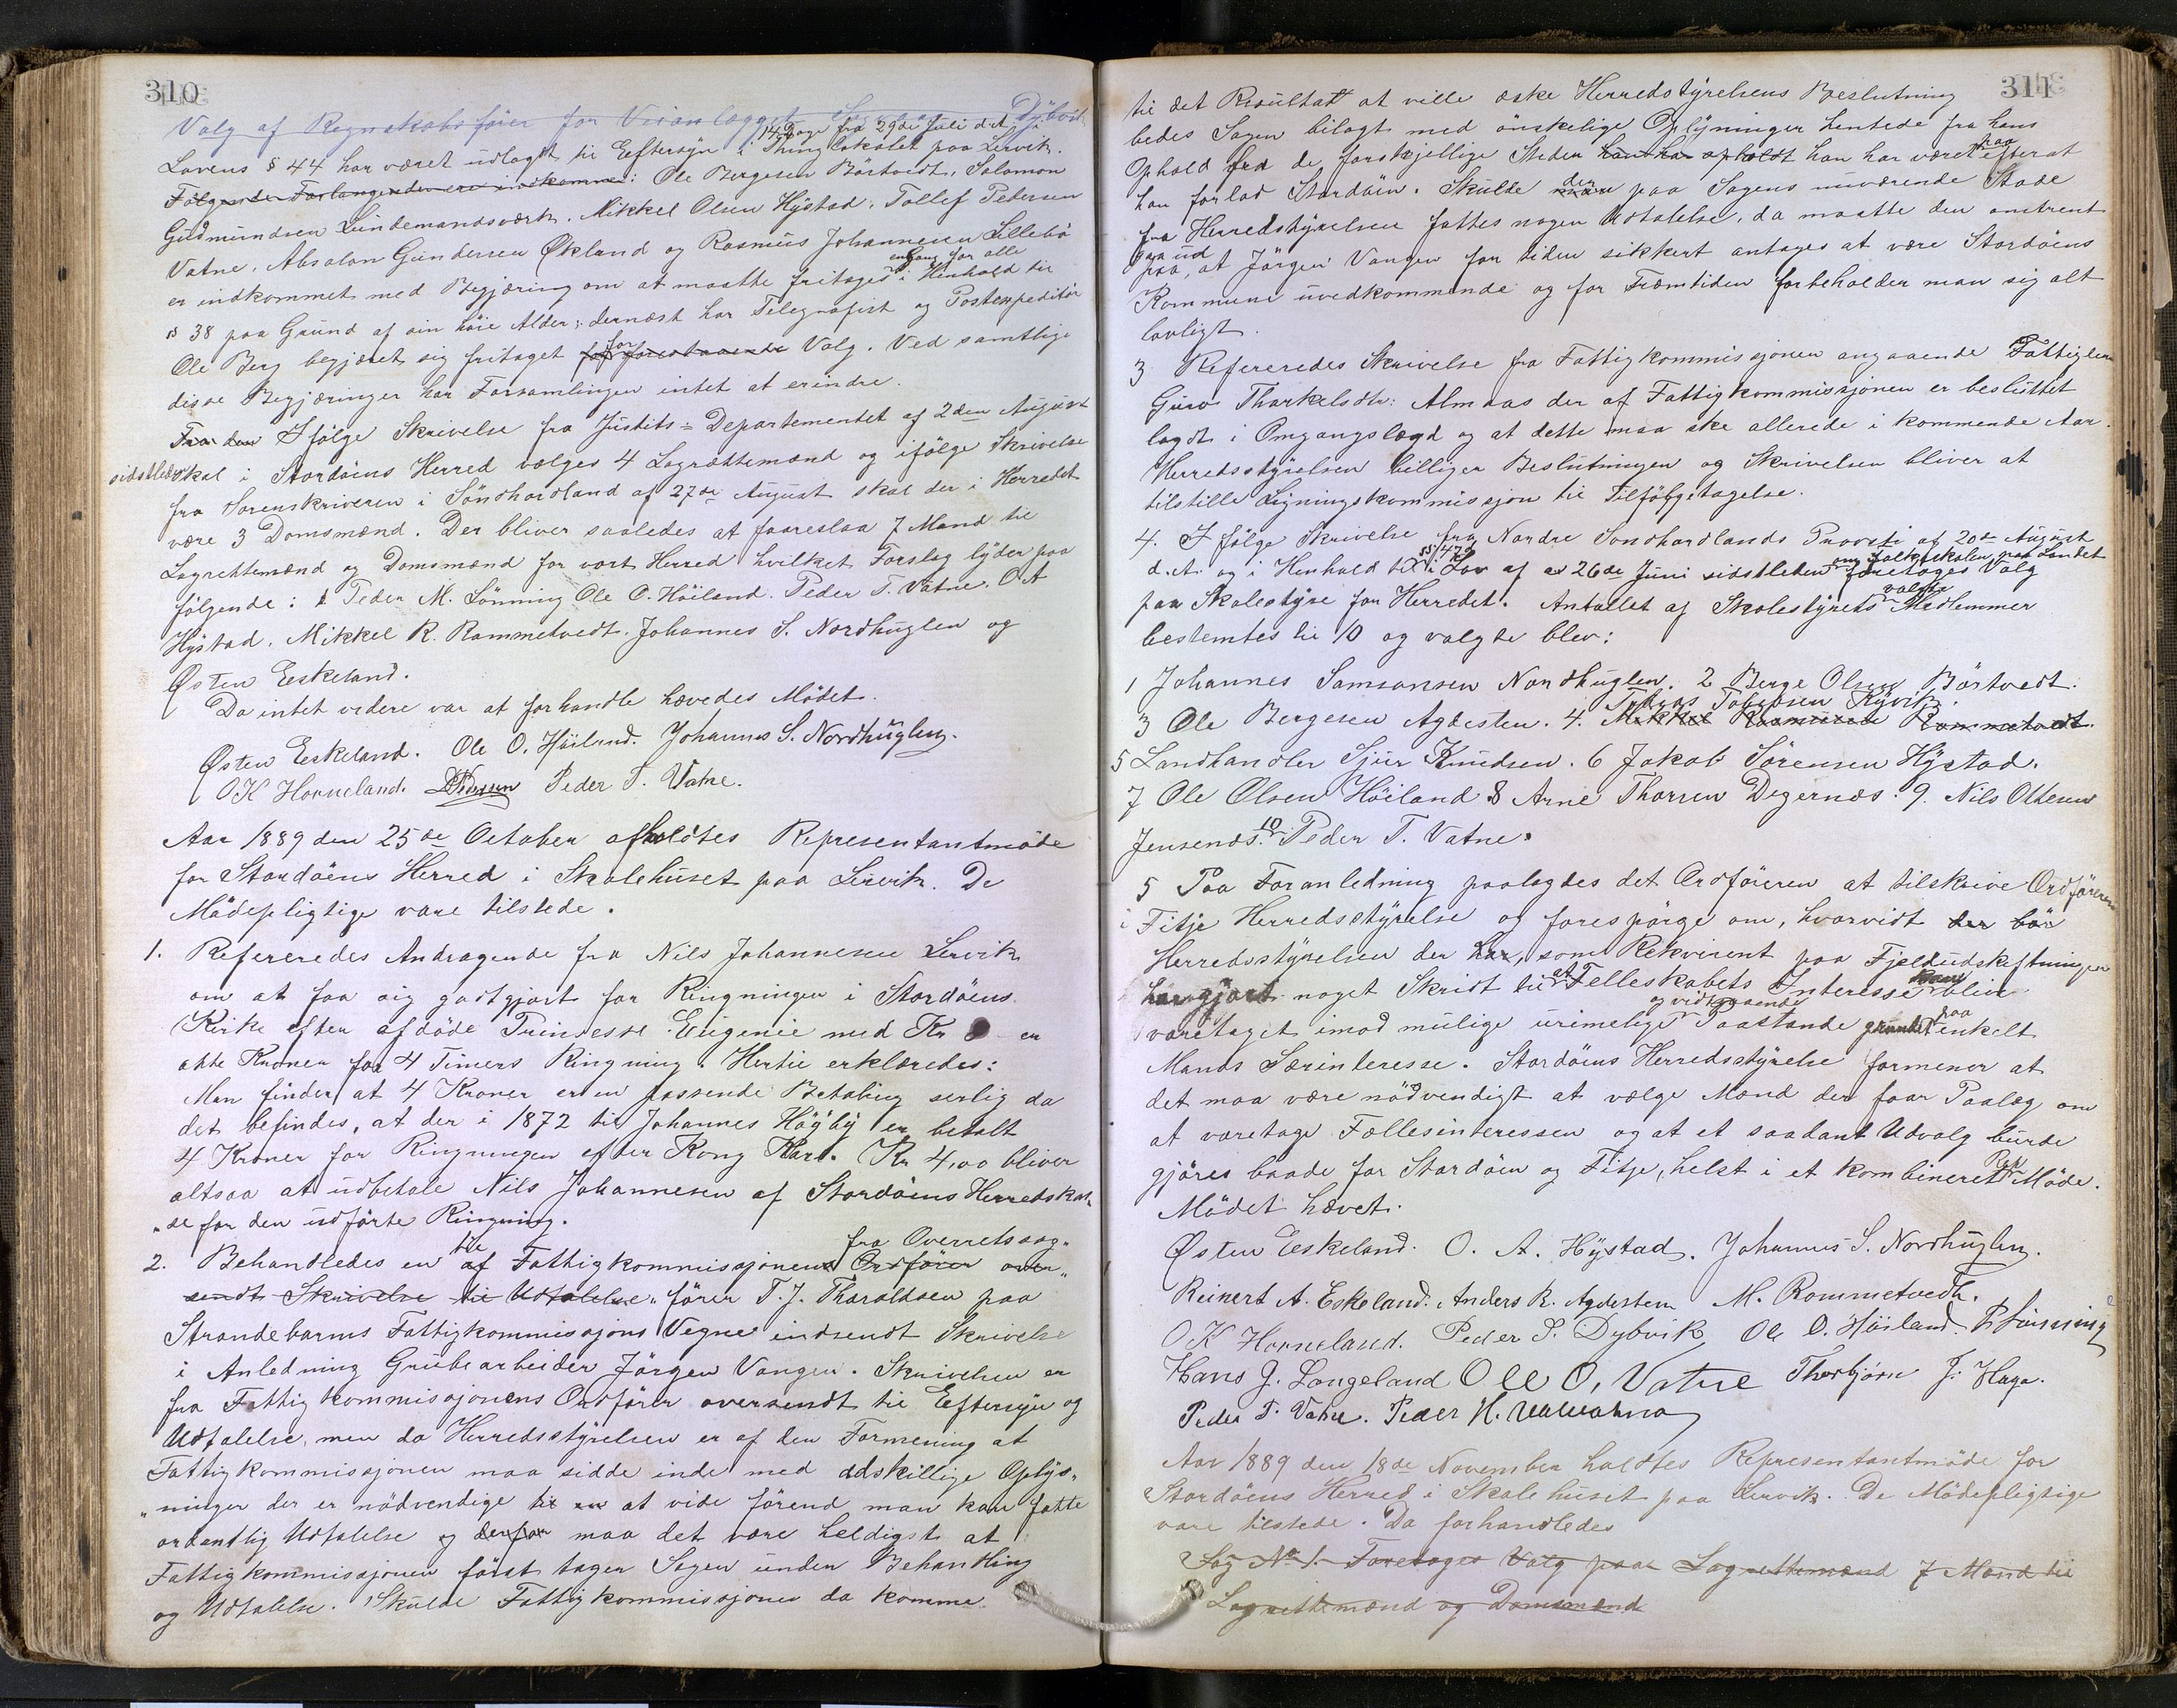 310
Valg af Regnskabsfører for Veianlægget Dybvik
Lovens § 44 har været udlagt til Eeftersyn i Thinglokalet paa Lervik.
14 Dage fra 29de Juli d.A.
Følgende Forlangender ere indkomne: Ole Bergesen Börtvedt, Salomon
Gudmundsen Lundemandsværk. Mikkel Olsen Hÿstad, Tollef Pedersen
Vatne, Absalon Gundersen Økland og Rasmus Johannesen Lillebö
er indkommet med Begjæring om at maatte fritages engang for alle i Henhold til
§ 38 paa Grund af sin höie Alder; dernæst har Telegrafist og Postexpeditör
Ole Berg begjæret sig fritaget for forestaaende Valg. Ved samtlige
disse Begjæringer har Forsamlingen intet at erindre.
Fra den Ifölge Skrivelse fra Justits-Departementet af 2den August
sidstleden skal i Stordöens Herred vælges 4 Lagrettemænd og ifölge Skrivelse
fra Sorenskriveren i Söndhordland af 27de August skal der i Herredet
være 3 Domsmænd. Der bliver saaledes at foareslaa 7 Mand til
Lagrettemænd og Domsmænd for vort Herred hvilket Forslag lÿder paa
fölgende: Peder M. Lönning Ole O. Höiland. Peder T. Vatne. O A
Hÿstad, Mikkel R. Rommetvedt, Johannes S. Nordhuglen og
Østen Eskeland.
Da intet videre var at forhandle hævedes Mödet.
Østen Eskeland. Ole O. Höiland. Johannes S. Nordhuglen.
O K Horneland. Pedersen Peder T. Vatne.
Aar 1889 den 25de October afholdtes Representantmöde
for Stordöens Herred i Skolehuset paa Lervik. De
Mödepligtige vare tilstede.
1. Refereredes Andragende fra Nils Johannesen Lervik
om at faa sig godtgjort for Ringningen i Stordöens
Kirke efter afdöde Prinsesse Eugenie med Kr 8 er
otte Kroner for 4 Timers Ringning. Hertil erklæredes:
Man finder at 4 Kroner er en passende Betaling serlig da
det befindes, at der i 1872 til Johannes Höÿbÿ er betalt
4 Kroner for Ringningen efter Kong Karl. Kr 4,00 bliver
altsaa at udbetale Nils Johannesen af Stordöens Herredskas-
"se for den udförte Ringning.
2. Behandledes en til af Fattigkommissjonens Ordförer over"
fra Overretssag"
sendt Skrivelse til Udtalelse "förer T. J. Tharaldsen paa
Strandebarms Fattigkommissjons Vegne indsendt Skrivelse
i Anledning Grubearbeider Jörgen Vangen. Skrivelsen er
fra Fattigkommissjonens Ordförer oversendt til Eeftersyn og
Udtalelse, men da Herredsstÿrelsen er af den Formening at
Fattigkommissjonen maa sidde inde med adskillige Oplÿs"
"ninger der er nödvendige til en at vide förend man kan fatte
ordentlig Udtalelse og derfor maa det være heldigst at
Fattigkommissjonen först tager Sagen under Behandling
og Udtalelse. Skulde Fattigkommissjonen da komme
311
til det Resultat at ville æske Herredstÿrelsens Beslutning
bedes Sagen bilagt med önskelige Oplÿsninger hentede fra hans
Ophold fra de forskjellige Steder han har opholdt han har været paa efterat
han forlod Stordöen. Skulde der paa Sagens nuværende Stade
fra Herredstÿrelsen fattes nogen Udtalelse, da maatte den omtrent
gaa ud paa, at Jörgen Vangen for tiden sikkert antages at være Stordöens
Kommune uvedkommende og for Fremtiden forbeholder man sig alt
lovligt.
3 Refereredes Skrivelse fra Fattigkommissjonen angaaende Fattiglem
Guro Thorkelsdtr: Almaas der af Fattigkommissjonen er besluttet
lagt i Omgangslægd og at dette maa ske allerede i kommende Aar.
Herredsstÿrelsen billiger Beslutningen og Skrivelsen bliver at
tilstille Ligningskommissjon til Tilfölgetagelse.
4. Ifölge Skrivelse fra Nordre Söndhordlands Provsti af 20de August
d. A. og i Henhold til § 47 i Lov af 26de Juni sidstleden om Folkeskolen paa Landet foretages Valg
paa Skolestÿre for Herredet. Antallet af Skolestÿrets valgte Medlemmer
bestemtes til 10 og valgte blev:
1 Johannes Samsonsen Nordhuglen. 2 Berge Olsen Börtvedt.
3 Ole Bergesen Agdesten. 4. Mikkel Rasmussen Rommetvedt. Tobias Tobiasen Rÿvik.
5 Landhandler Sjur Knudsen. 6 Jakob Sörensen Hÿstad.
7 Ole Olsen Höiland 8 Arne Thorsen Degernæs. 9. Nils Ottesen
Jensenæs. 10 Peder T. Vatne.
5 Paa Foranledning paalagdes det Ordföreren at tilskrive Ordföreren
i Fitje Herredsstÿrelse og forespörge om, hvorvidt der bör
Herredsstÿrelsen der har, som Rekvirent paa Fjeldudskiftningen
har gjort noget Skridt til at Felleskabets Interesse kan blive
varetaget imod mulige urimelige og vidtgaaende Paastande grundet paa enkelt
Mands Særinteresse. Stordöens Herredsstÿrelse formener at
det maa være nödvendigt at vælge Mænd der faar Paalæg om
at varetage Fællesinteressen og at et saadant Udvalg burde
gjöres baade for Stordöen og Fitje, helst i et kombineret Rep Möde.
Mödet hævet.
Østen Eeskeland. O. A. Hÿstad. Johannes S. Nordhuglen.
Reinert A. Eskeland. Anders R. Agdesten M. Rommetvedt.
O K Horneland. Peder P. Dybvik Ole O. Höiland. P Lönning
Hans J. Langeland Ole O, Vatne Thorbjörn J. Haga.
Peder T. Vatne. Peder H.
Aar 1889 den 18de November holdtes Representantmöde for
Stordöens Herred i Skolehuset paa Lervik. De Mödepligtige
vare tilstede. Da forhandledes
Sag No 1. Foretoges Valg paa Lagrettemænd 7 Mand til
Lagrettemænd og Domsmænd